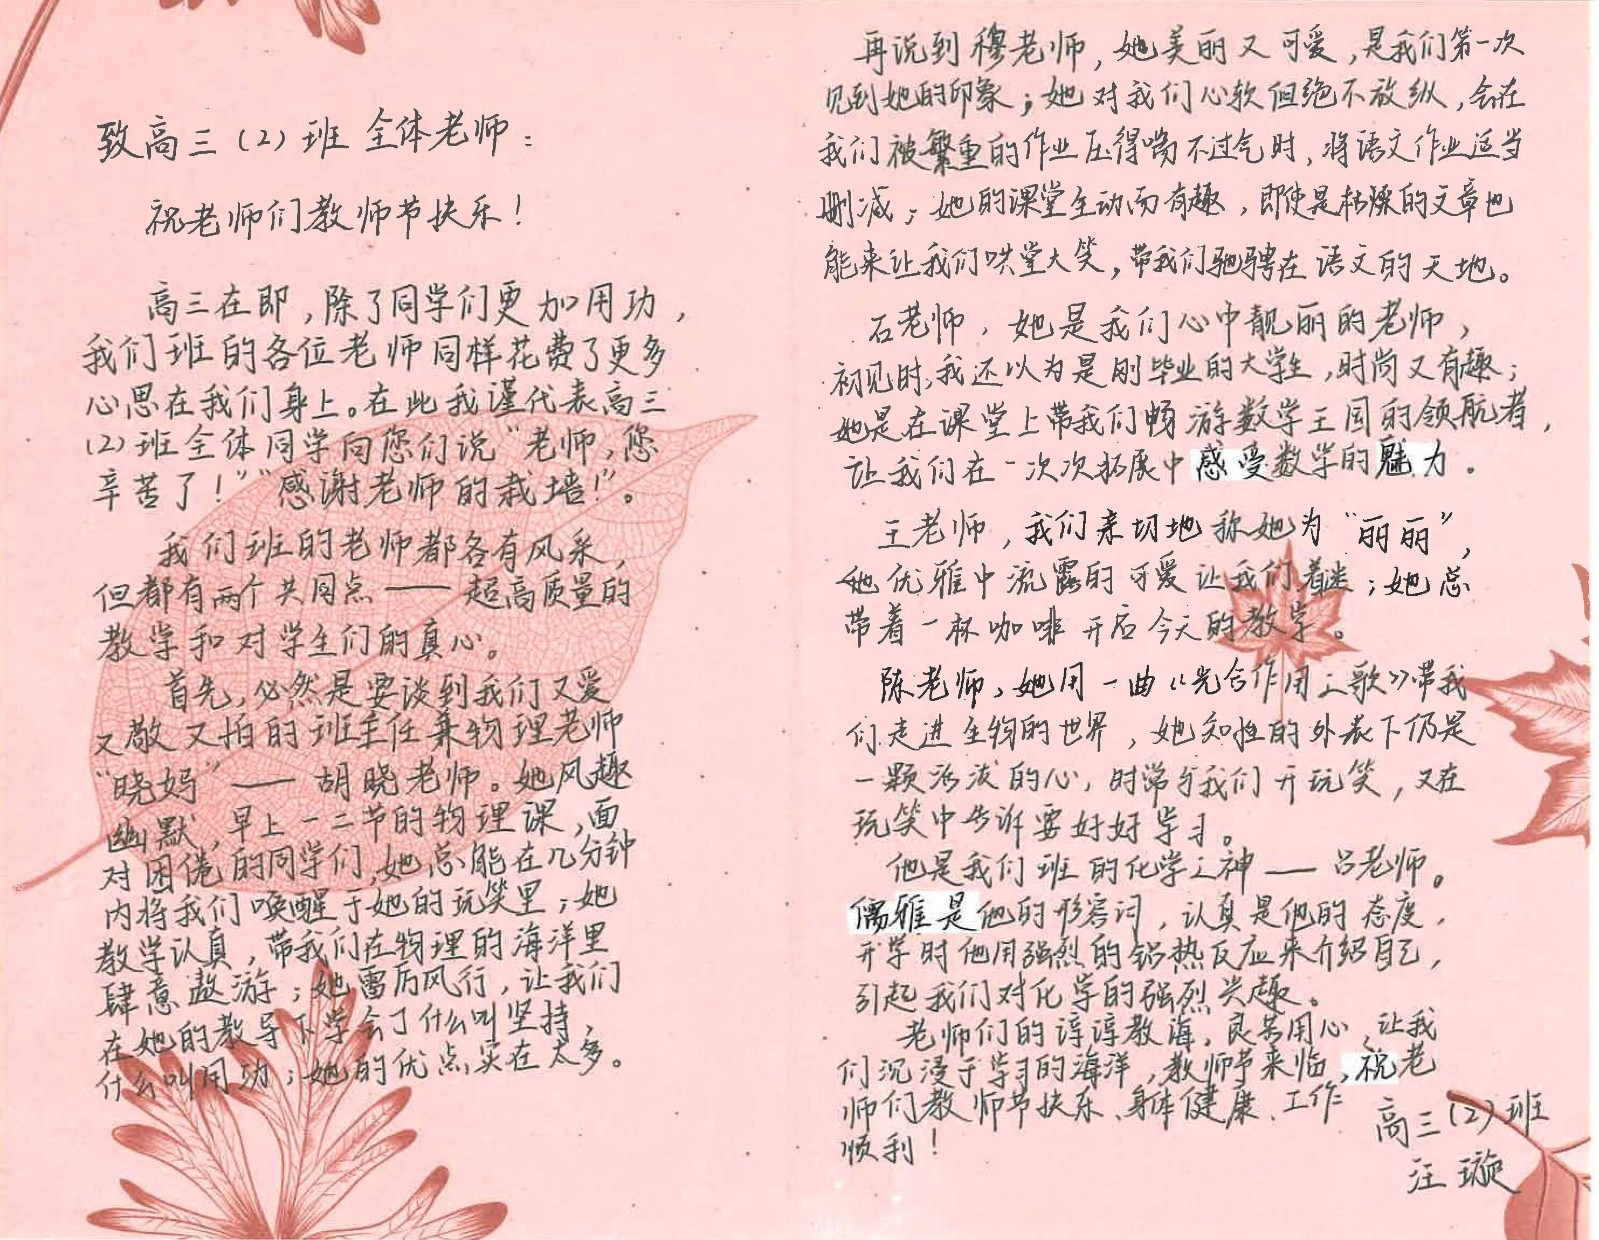 致高三(2)班 全体老师：
祝老师们教师节快乐！
高三在即，除了同学们更加用功，
我们班的各位老师同样花费了更多
心思在我们身上。在此我谨代表高三
(2)班全体同学向您们说“老师，您
辛苦了！”“感谢老师的栽培！”。
我们班的老师都各有风采，
但都有两个共同点——超高质量的
教学和对学生们的真心。
首先，必然是要谈到我们又爱
又敬又怕的班主任兼物理老师
“晓妈”——胡晓老师。她风趣
幽默，早上一二节的物理课，面
对困倦的同学们，她总能在几分钟
内将我们唤醒于她的玩笑里；她
教学认真，带我们在物理的海洋里
肆意遨游；她雷厉风行，让我们
在她的教导下学会了什么叫坚持，
什么叫用功；她的优点实在太多。
再说到穆老师，她美丽又可爱，是我们第一次
见到她的印象；她对我们心软但绝不放纵，会在
我们被繁重的作业压得喘不过气时，将语文作业适当
删减；她的课堂生动而有趣，即使是枯燥的文章也
能来让我们哄堂大笑，带我们驰骋在语文的天地。
石老师，她是我们心中靓丽的老师，
初见时，我还以为是刚毕业的大学生，时尚又有趣；
她是在课堂上带我们畅游数学王国的领航者，
让我们在一次次拓展中感受数学的魅力。
王老师，我们亲切地称她为“丽丽”，
她优雅中流露的可爱让我们着迷；她总
带着一杯咖啡开启今天的教学。
陈老师，她用一曲《光合作用之歌》带我
们走进生物的世界，她知性的外表下仍是
一颗活泼的心，时常与我们开玩笑，又在
玩笑中告诉要好好学习。
他是我们班的化学之神——吕老师。
儒雅是他的形容词，认真是他的态度，
开学时他用强烈的铝热反应来介绍自己，
引起我们对化学的强烈兴趣。
老师们的谆谆教诲，良苦用心，让我
们沉浸于学习的海洋，教师节来临，祝老
师们教师节快乐、身体健康、工作
顺利！
高三(2)班
汪璇